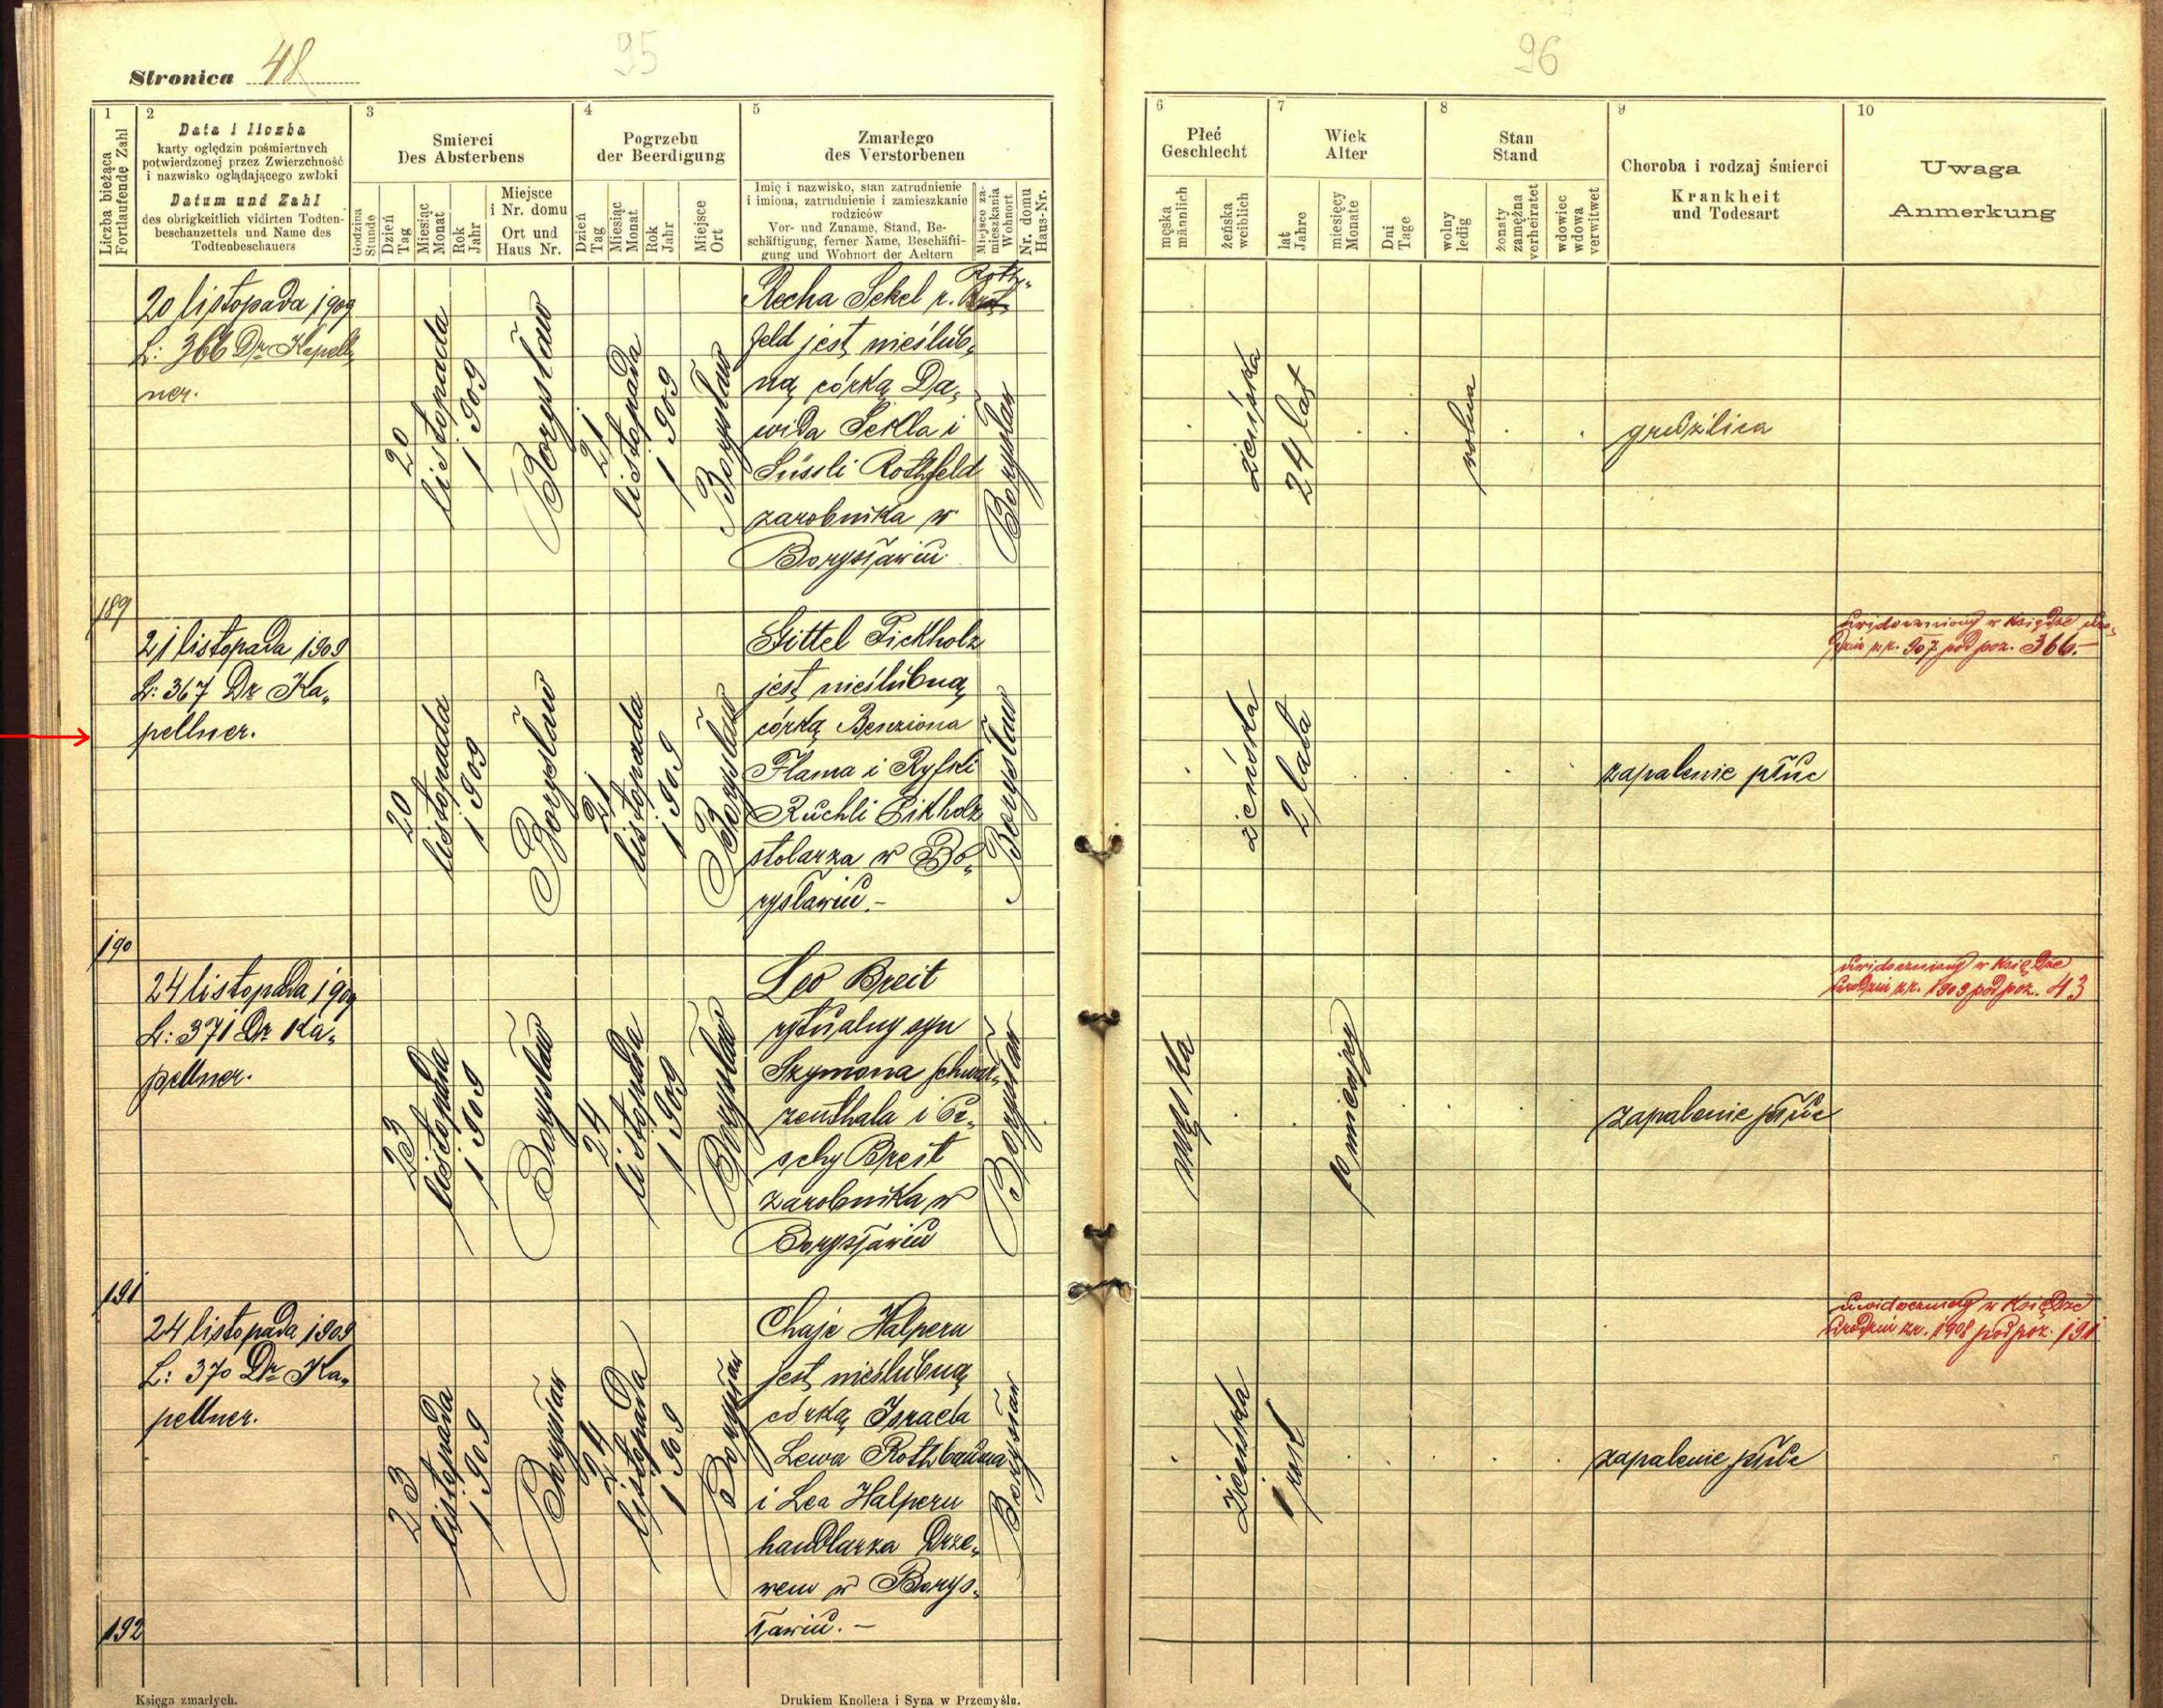 Stronica 48
95
96
1
Liczba bieżąca
Fortlaufende Zahl
2
Data i liczba
karty oględzin pośmiertnych
potwierdzonej przez Zwierzchność
i nazwisko oglądającego zwłoki
Datum und Zahl
des obrigkeitlich vidirten Todten-
beschauzettels und Name des
Todtenbeschauers
3
Smierci
Des Absterbens
Godzina
Stunde
Dzień
Tag
Miesiąc
Monat
Rok
Jahr
Miejsce
i Nr. domu
Ort und
Haus Nr.
4
Pogrzebu
der Beerdigung
Dzień
Tag
Miesiąc
Monat
Rok
Jahr
Miejsce
Ort
5
Zmarłego
des Verstorbenen
Imię i nazwisko, stan zatrudnienie
i imiona, zatrudnienie i zamieszkanie
rodziców
Vor- und Zuname, Stand, Be-
schäftigung, ferner Name, Beschäfti-
gung und Wohnort der Aeltern
Miejsce za-
mieszkania
Wohnort
Nr. domu
Haus-Nr.
6
Płeć
Geschlecht
męska
männlich
żeńska
weiblich
7
Wiek
Alter
lat
Jahre
miesięcy
Monate
Dni
Tage
8
Stan
Stand
wolny
ledig
żonaty
zamężna
verheiratet
wdowiec
wdowa
verwitwet
9
Choroba i rodzaj śmierci
Krankheit
und Todesart
10
Uwaga
Anmerkung
20 listopada 1909
L: 366 Dr Kapell„
ner.
20
listopada
1909
Borysław
21
listopada
1909
Borysław
Recha Sekel r. Roth„
feld jest nieślub„
ną córką Da„
wida Sekla i
Süssli Rothfeld
zarobnika w
Borysławiu
Borysław
żeńska
24 lat
wolna
gruźlica
189
21 listopada 1909
L: 367 Dr Ka„
pellner.
20
listopada
1909
Borysław
21
listopada
1909
Borysław
Gittel Pickholz
jest nieślubną
córką Benziona
Flama i Ryfki
Ruchli Pikholz
stolarza w Bo„
rysławiu.–
Borysław
żeńska
2 lata
zapalenie płuc
uwidoczniony w Księdze uro„
dzin z r. 907 pod poz. 366.–
190
24 listopada 1909
L: 371 Dr Ka„
pellner.
23
listopada
1909
Borysław
24
listopada
1909
Borysław
Leo Breit
rytualny syn
Szymona Schwar„
zenthala i Pe„
schy Breit
zarobnika w
Borysławiu
Borysław
męska
10 miesięcy
zapalenie płuc
uwidoczniony w Księdze
urodzin z r. 1909 pod poz. 43
191
24 listopada 1909
L: 370 Dr Ka„
pellner.
23
listopada
1909
Borysław
24
listopada
1909
Borysław
Chaje Halpern
jest nieślubną
córką Israela
Lewa Rothbauma
i Lea Halpern
handlarza Drze„
wem w Borys„
ławiu.–
Borysław
żeńska
1 rok
zapalenie płuc
uwidoczniony w Księdze
urodzin z r. 1908 pod poz. 191
192
Księga zmarłych.
Drukiem Knollera i Syna w Przemyślu.